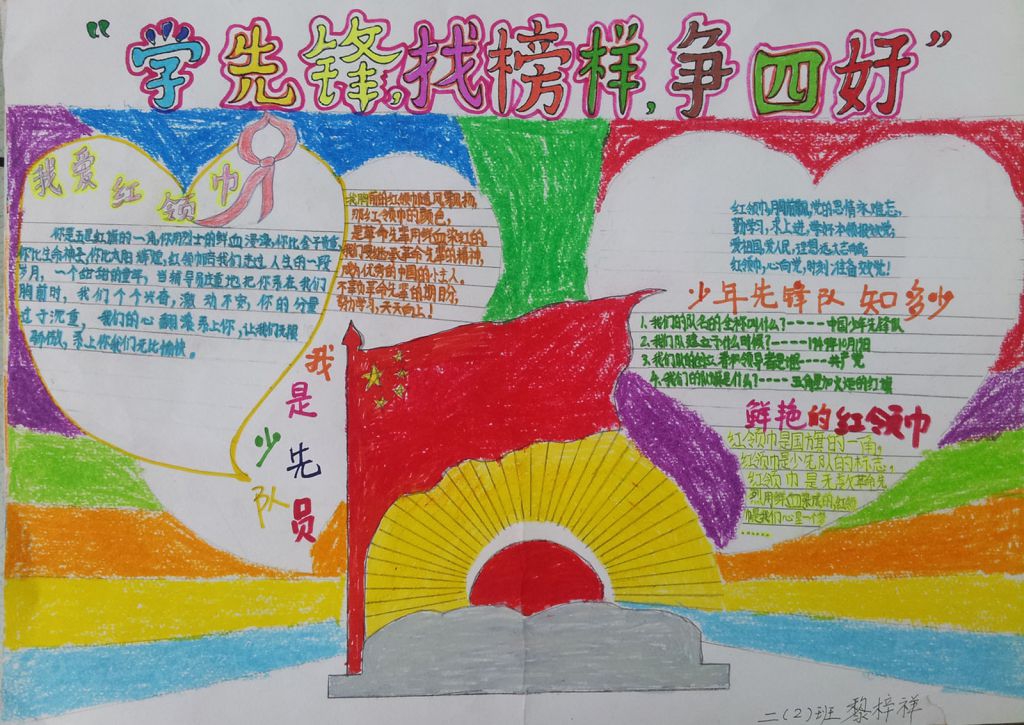 “学先锋,找榜样,争四好”
我爱红领巾
你是五星红旗的一角,你用烈士的鲜血浸染,你比金子贵重,
你比生命神圣,你比太阳辉煌,红领巾陪我们走过人生的一段
岁月,一个红甜的童年,当辅导员庄重地把你系在我们
胸前时,我们个个兴奋,激动不安,你的分量
过于沉重,我们的心翻滚系上你,让我们无限
骄傲,系上你我们无比愉快。
我胸前的红领巾随风飘扬,
那红领巾的颜色,
是革命先辈用鲜血染红的,
我们要继承革命先辈的精神,
成为优秀的中国的小主人。
不辜负革命先辈的期盼,
努力学习,天天向上!
我是少先队员
红领巾,胸前飘,党的恩情永难忘,
勤学习,求上进,学好本领报效党;
爱祖国,爱人民,理想远大志嘹亮;
红领巾,心向党,时刻准备效党!
少年先锋队知多少
1、我们的队名的全称叫什么?-----中国少年先锋队
2、我们队建立于什么时候?----1949年10月13日
3、我们队的创立者和领导者是谁----共产党
4、我们的队旗是什么?----五角星加火炬的红旗
鲜艳的红领巾
红领巾是国旗的一角,
红领巾是少先队的标志,
红领巾是无数革命先
烈用鲜血染成的,红领
巾是我们心里一个
......
二(2)班 黎梓祥